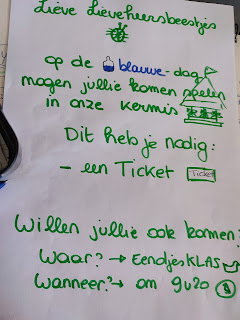 Lieve Lieveheersbeestjes
op de blauwe-dag
mogen jullie komen spelen
in onze kermis
Dit heb je nodig:
- een Ticket Ticket
Willen jullie ook komen?
Waar? → EendjesKLAS
Wanneer? → om 9u20